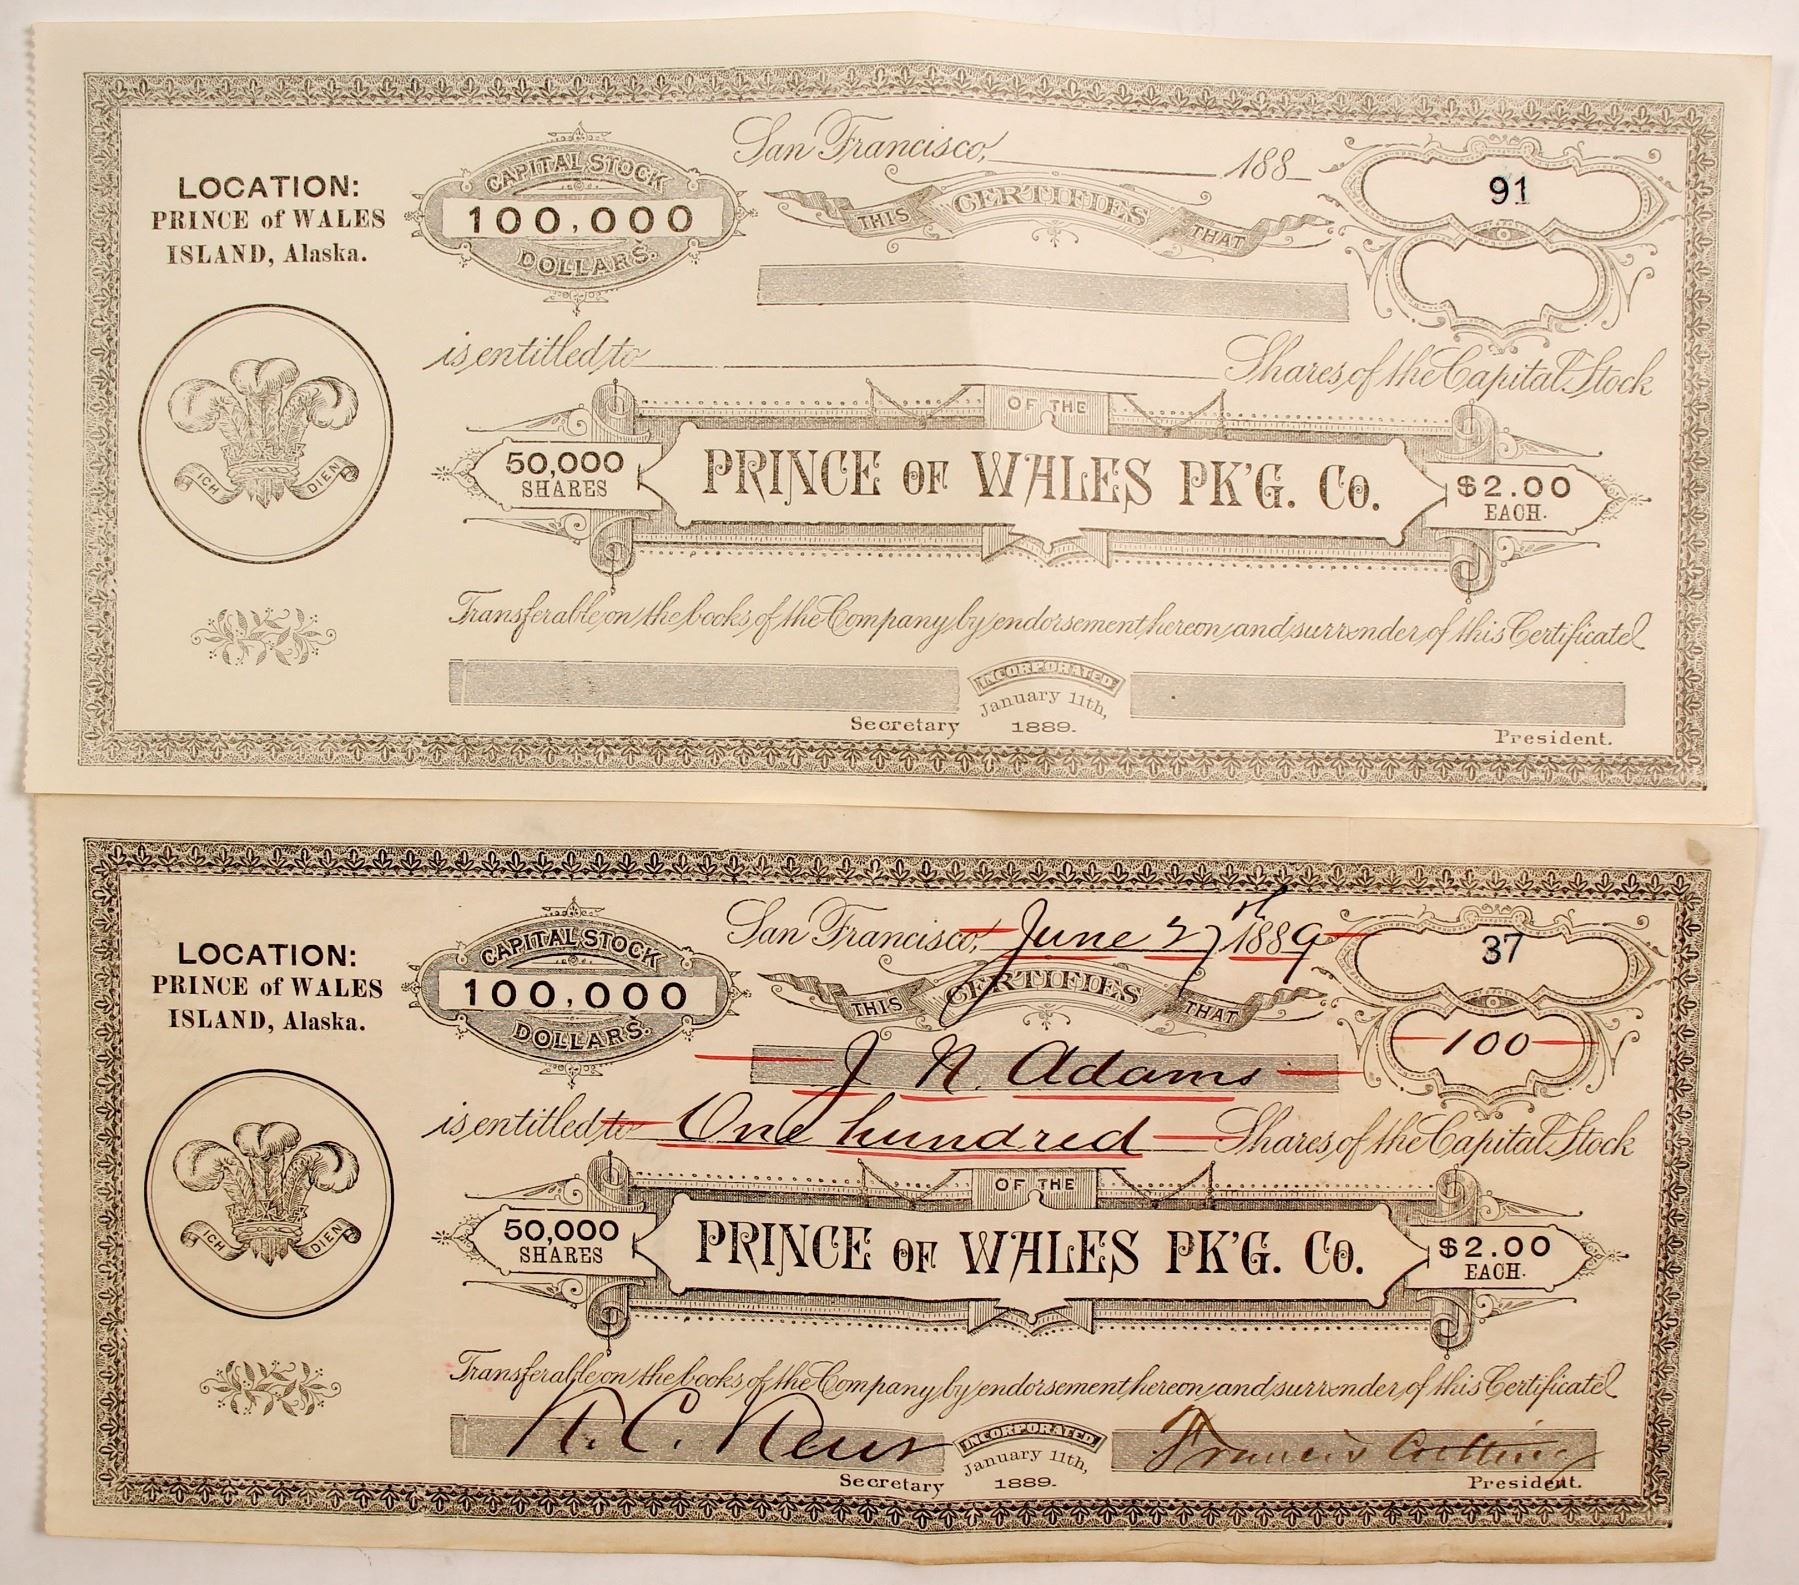 LOCATION:
PRINCE of WALES
ISLAND, Alaska.
CAPITAL STOCK
100,000
DOLLARS.
San Francisco, 188
91
THIS CERTIFIES THAT
is entitled to Shares of the Capital Stock
ICH DIEN
OF THE
50,000
SHARES
PRINCE OF WALES PK'G. Co.
$2.00
EACH.
Transferable on the books of the Company by endorsement hereon and surrender of this Certificate
INCORPORATED
January 11th,
1889.
Secretary
President.
LOCATION:
PRINCE of WALES
ISLAND, Alaska.
CAPITAL STOCK
100,000
DOLLARS.
San Francisco, June 27th 1889
37
THIS CERTIFIES THAT
100
J N. Adams
is entitled to One hundred Shares of the Capital Stock
ICH DIEN
OF THE
50,000
SHARES
PRINCE OF WALES PK'G. Co.
$2.00
EACH.
Transferable on the books of the Company by endorsement hereon and surrender of this Certificate
C.
Francis Cutting
INCORPORATED
January 11th,
1889.
Secretary
President.